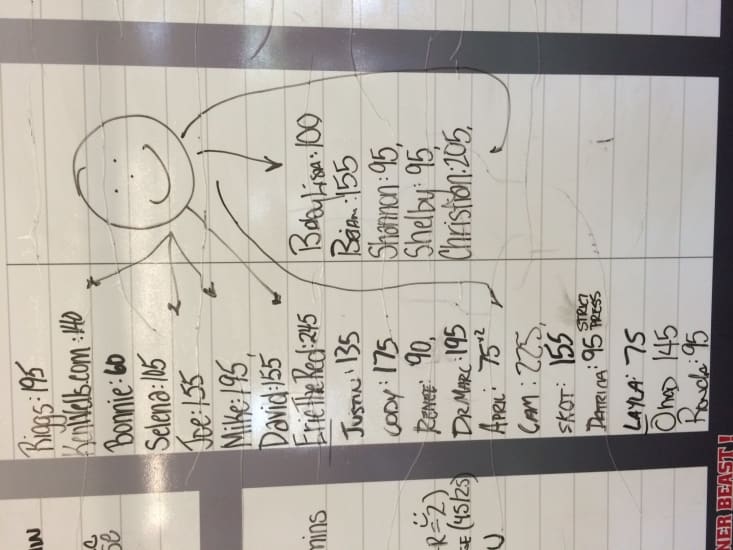 Riggs: 195
KenWells.com: 140
Bonnie: 60
Selena: 105
Joe: 155
Mike: 195
David: 155
Eric the Red: 245
Justin: 135
Cody: 175
Renee: 90
Dr Marc: 195
April: 75 x2
Cam: 225
Skot: 155
Patrina: 95 STRICT PRESS
Layla: 75
Omar 145
Ronda: 95
Baby Lisa: 100
Brian: 155
Shannon: 95
Shelby: 95
Christian: 205
mins
-R=2)
(45/25)
NER BEAST!